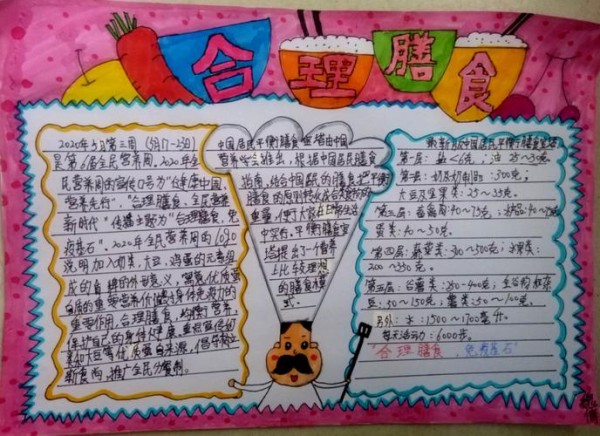 合理膳食
2020年5月第三周(5月17-23日)
是第6届全民营养周,2020年全
民营养周的宣传口号为"健康中国,
营养先行","合理膳食,全民营养
新时代"传播主题为"合理膳食,免
疫基石"。2020年全民营养周的
说明加入奶类,大豆,鸡蛋的元素组
成的
白质的重要营养价值
重要作用,合理膳食,均衡营养,
保护自己的身体健康,
新食尚,推广全民分餐制。
中国居民平衡膳食宝塔由中国
营养学会推出,根据中国居民膳食
指南,结合中国居民的膳食把平衡
膳食的原则转化成各类食物的
重量,便于大家在日常生活
中实行,平衡膳食宝
塔提出了一个营养
上比较理想
的膳食模
式。
新版中国居民平衡膳食宝塔
第一层:盐<6克;油25~30克。
第二层:奶及奶制品:300克;
大豆及坚果类:25~35克。
第三层:畜禽肉:40~75克,水产品:40~75克
蛋类:40~50克。
第四层:蔬菜类:300~500克;水果类:
200~350克。
第五层:谷薯类:250~400克;全谷物和杂
豆:50~150克;薯类:50~100克。
另外:水:1500~1700毫升。
每天活动:6000步。
"合理膳食,免疫基石"